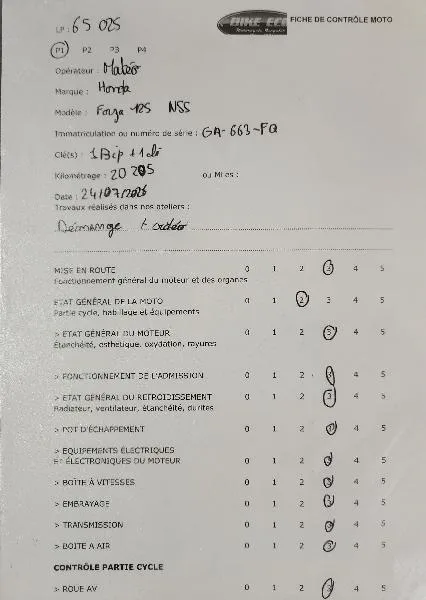 LP : 65 025
BIKE ECO
FICHE DE CONTRÔLE MOTO
P1 P2 P3 P4
Opérateur : Matéo
Marque : Honda
Modèle : Forza 125 NSS
Immatriculation ou numéro de série : GA-663-FQ
Clé(s) : 1 Bip + 1 clé
Kilométrage : 20 205 ou Miles :
Date : 24/07/2026
Travaux réalisés dans nos ateliers :
Démarrage + vidéo
MISE EN ROUTE 0 1 2 3 4 5
Fonctionnement général du moteur et des organes
ETAT GÉNÉRAL DE LA MOTO 0 1 2 3 4 5
Partie cycle, habillage et équipements
> ETAT GÉNÉRAL DU MOTEUR 0 1 2 3 4 5
Étanchéité, esthétique, oxydation, rayures
> FONCTIONNEMENT DE L'ADMISSION 0 1 2 3 4 5
> ETAT GÉNÉRAL DU REFROIDISSEMENT 0 1 2 3 4 5
Radiateur, ventilateur, étanchéité, durites
> POT D'ÉCHAPPEMENT 0 1 2 3 4 5
> EQUIPEMENTS ÉLECTRIQUES
ET ÉLECTRONIQUES DU MOTEUR 0 1 2 3 4 5
> BOÎTE À VITESSES 0 1 2 3 4 5
> EMBRAYAGE 0 1 2 3 4 5
> TRANSMISSION 0 1 2 3 4 5
> BOITE A AIR 0 1 2 3 4 5
CONTRÔLE PARTIE CYCLE
> ROUE AV 0 1 2 3 4 5